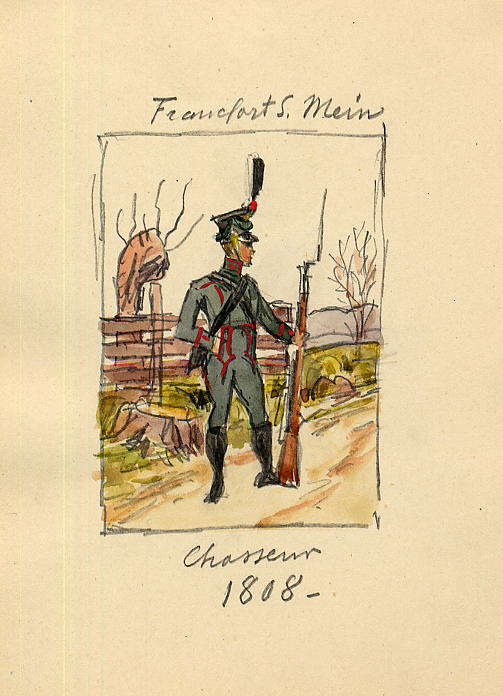 Francfort S. Mein
Chasseur
1808-